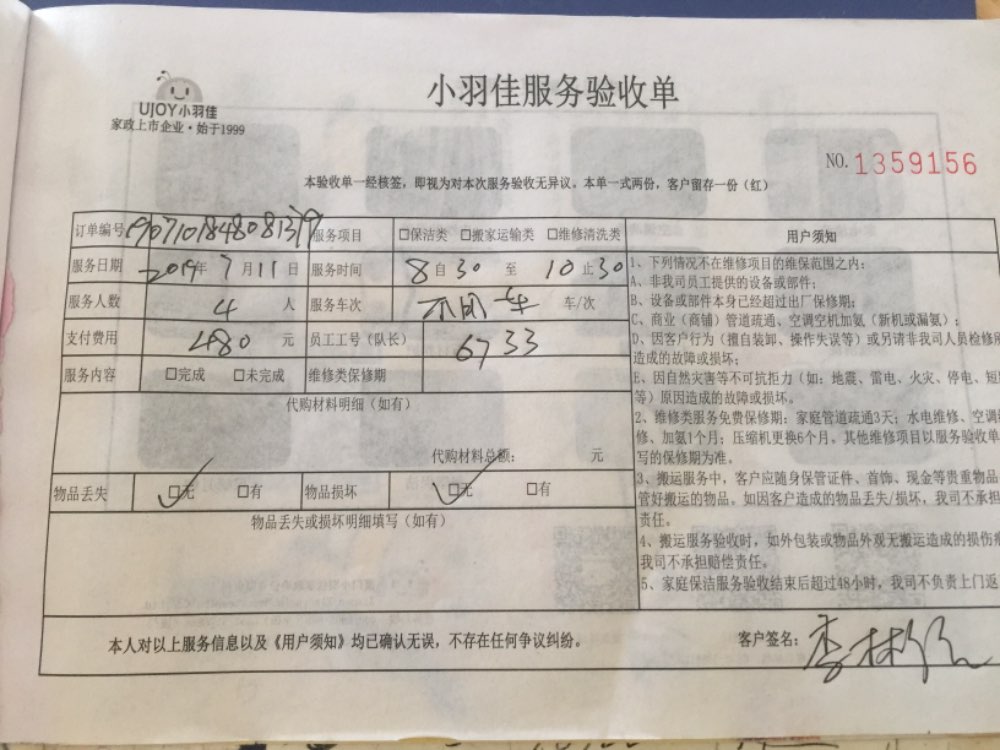 UJOY小羽佳
家政上市企业·始于1999
小羽佳服务验收单
NO. 1359156
本验收单一经核签，即视为对本次服务验收无异议。本单一式两份，客户留存一份（红）
订单编号 服务项目 □保洁类 □搬家运输类 □维修清洗类
服务日期 2019年 7月 11日 服务时间 8自30 至 10止30
服务人数 4 人 服务车次 不用车 车/次
支付费用 480 元 员工工号（队长） 6733
服务内容 □完成 □未完成 维修类保修期
代购材料明细（如有）
代购材料总额： 元
物品丢失 □无 □有 物品损坏 □无 □有
物品丢失或损坏明细填写（如有）
用户须知
1、下列情况不在维修项目的维保范围之内：
A、非我司员工提供的设备或部件；
B、设备或部件本身已经超过出厂保修期；
C、商业（商铺）管道疏通、空调空机加氨（新机或漏氨）；
D、因客户行为（擅自装卸、操作失误等）或另请非我司人员检修所
造成的故障或损坏；
E、因自然灾害等不可抗拒力（如：地震、雷电、火灾、停电、短
等）原因造成的故障或损坏。
2、维修类服务免费保修期：家庭管道疏通3天；水电维修、空调
修、加氨1个月；压缩机更换6个月。其他维修项目以服务验收单
写的保修期为准。
3、搬运服务中，客户应随身保管证件、首饰、现金等贵重物品
管好搬运的物品。如因客户造成的物品丢失/损坏，我司不承担
责任。
4、搬运服务验收时，如外包装或物品外观无搬运造成的损伤
我司不承担赔偿责任。
5、家庭保洁服务验收结束后超过48小时，我司不负责上门返
本人对以上服务信息以及《用户须知》均已确认无误，不存在任何争议纠纷。
客户签名：